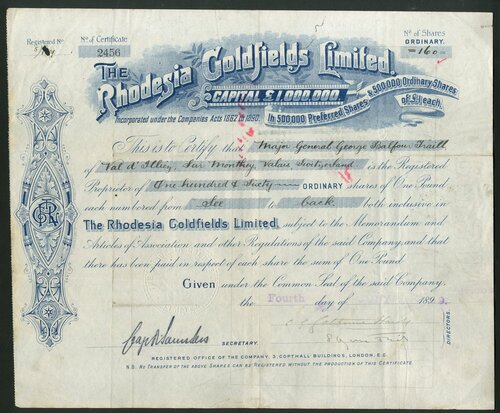 Registered No.
No. of Certificate
2456
No. of Shares
ORDINARY.
160
THE
Rhodesia Goldfields Limited.
CAPITAL £1,000,000
In 500,000 Preferred Shares
& 500,000 Ordinary Shares
of £1 each.
Incorporated under the Companies Acts 1862 to 1890.
This is to Certify that Major General George Balfour Traill
of Val d'Illiez, Sur Monthey, Valais Switzerland is the Registered
Proprietor of One hundred & Sixty ORDINARY shares of One Pound
each numbered from See to back both inclusive in
The Rhodesia Goldfields Limited, subject to the Memorandum and
Articles of Association and other Regulations of the said Company, and that
there has been paid in respect of each share the sum of One Pound
Given under the Common Seal of the said Company,
the Fourth day of 189
SECRETARY.
DIRECTORS.
REGISTERED OFFICE OF THE COMPANY, 3, COPTHALL BUILDINGS, LONDON, E.C.
N.B. NO TRANSFER OF THE ABOVE SHARES CAN BE REGISTERED WITHOUT THE PRODUCTION OF THIS CERTIFICATE.